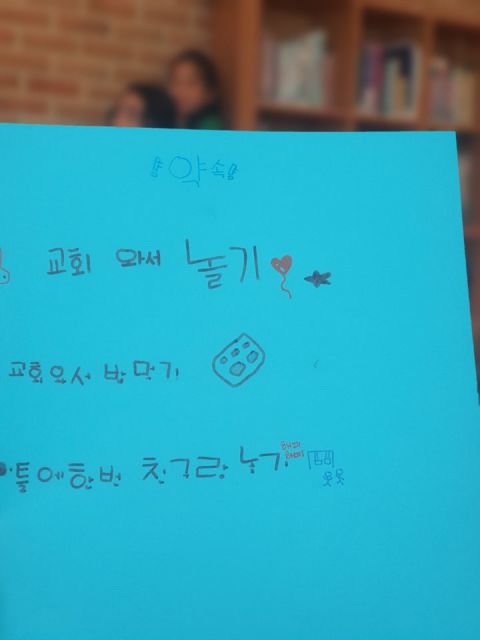 약속
교회 와서 놀기
교회오서 밥 먹기
틀에한번 친구랑 놀기